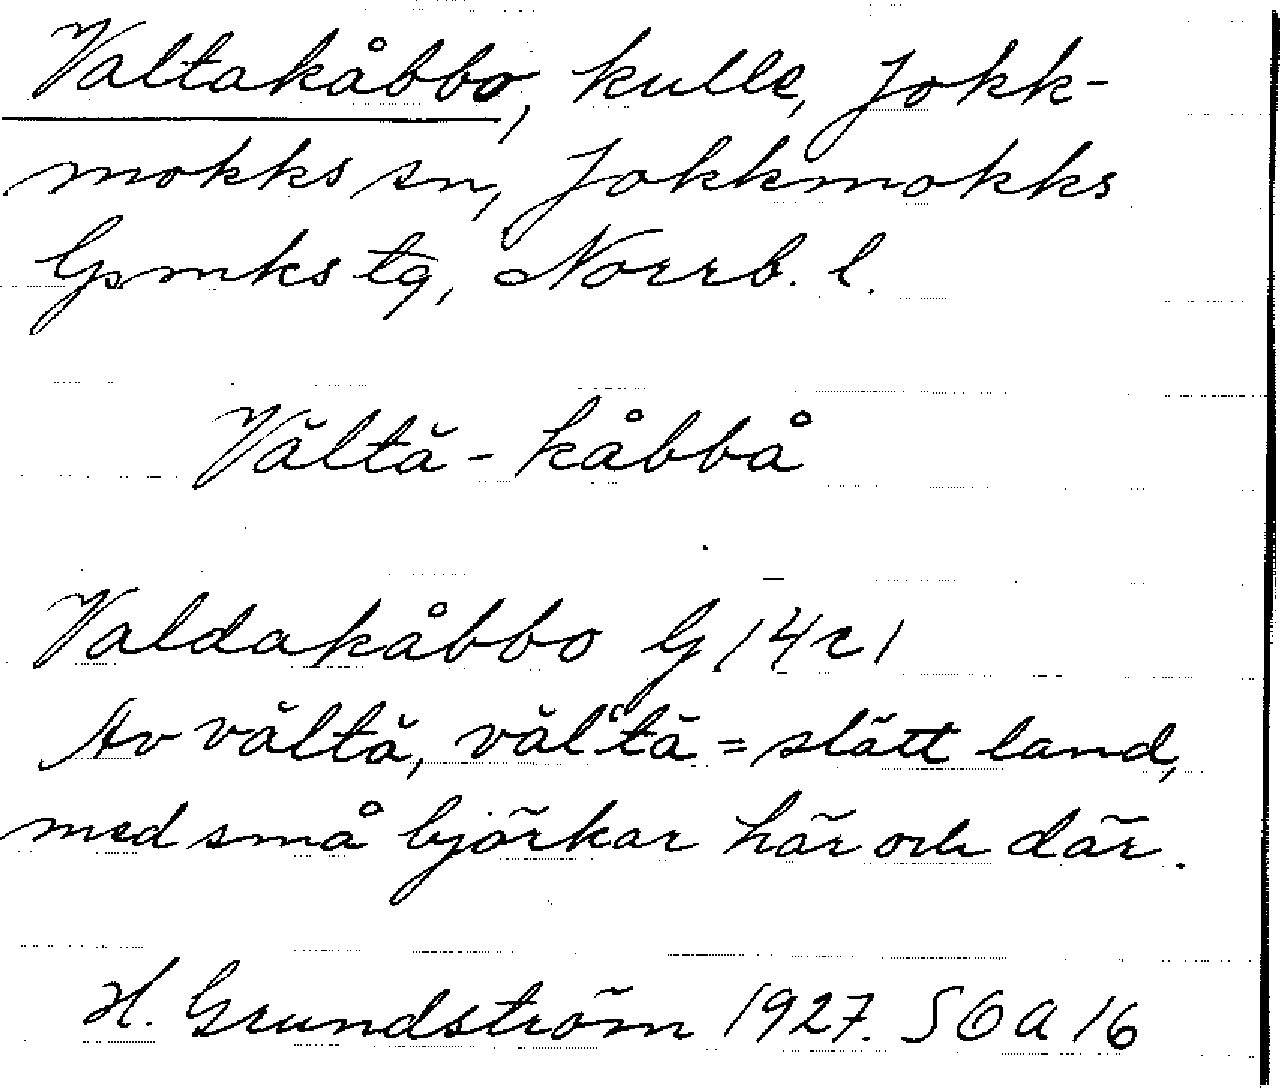 Valtakåbbo, kulle, Jokk-
mokks sn, Jokkmokks
lpmks tg, Norrb. l.
Văltă-kåbbå
Valdakåbbo G/42/
Av văltă, văl'tā = slätt land,
med små björkar här och där.
H. Grundström 1927. SOA 16